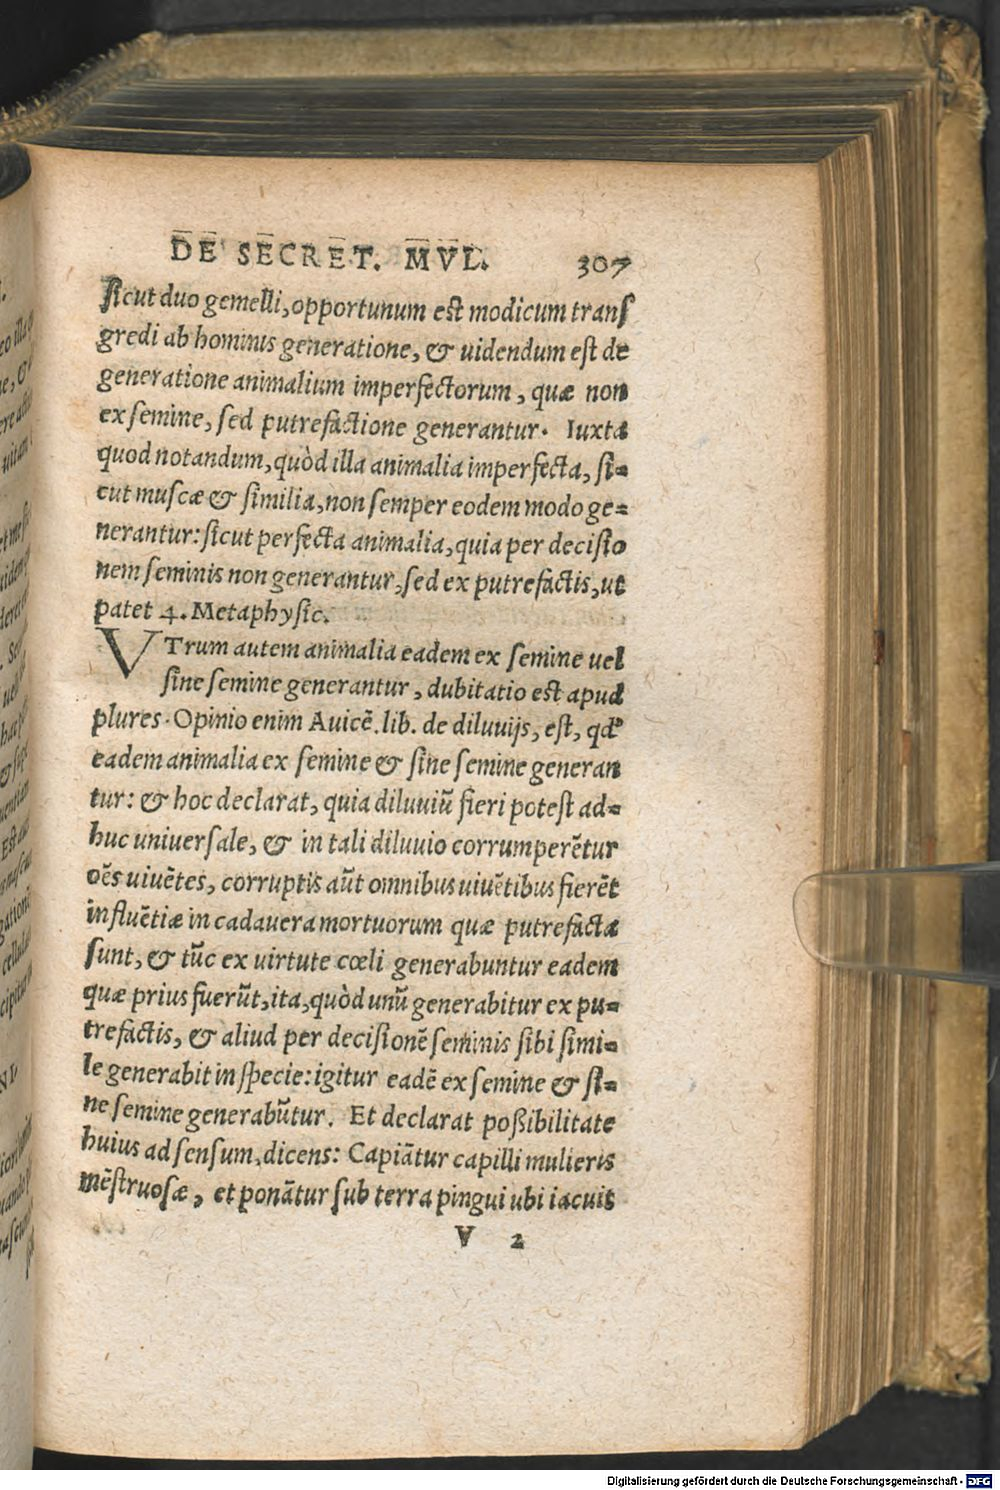 DE SECRET. MVL. 307
ſicut duo gemelli, opportunum eſt modicum tranſ
gredi ab hominis generatione, & uidendum eſt de
generatione animalium imperfectorum, quæ non
ex ſemine, ſed putrefactione generantur. Iuxta
quod notandum, quòd illa animalia imperfecta, ſi=
cut muſcæ & ſimilia, non ſemper eodem modo ge=
nerantur: ſicut perfecta animalia, quia per deciſio
nem ſeminis non generantur, ſed ex putrefactis, ut
patet 4. Metaphyſic.
VTrum autem animalia eadem ex ſemine uel
ſine ſemine generantur, dubitatio eſt apud
plures. Opinio enim Auicē. lib. de diluuijs, eſt, qđ
eadem animalia ex ſemine & ſine ſemine generan
tur: & hoc declarat, quia diluuiũ fieri poteſt ad=
huc uniuerſale, & in tali diluuio corrumperētur
oēs uiuētes, corruptis aũt omnibus uiuētibus fierēt
influētiæ in cadauera mortuorum quæ putrefacta
ſunt, & tũc ex uirtute cœli generabuntur eadem
quæ prius fuerũt, ita, quòd unũ generabitur ex pu=
trefactis, & aliud per deciſionē ſeminis ſibi ſimi=
le generabit in ſpecie: igitur eadē ex ſemine & ſi=
ne ſemine generabũtur. Et declarat poßibilitate
huius ad ſenſum, dicens: Capiātur capilli mulieris
mēſtruoſæ, et ponātur ſub terra pingui ubi iacuit
V 2
Digitalisierung gefördert durch die Deutsche Forschungsgemeinschaft - DFG